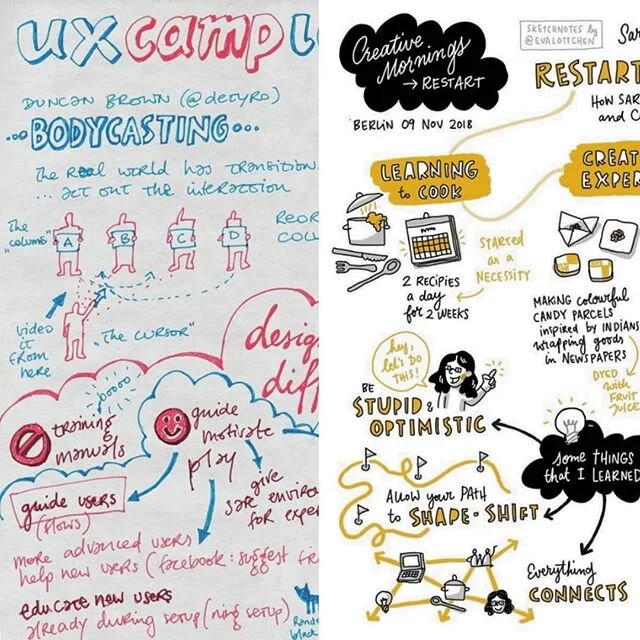 UX camp L
DUNCAN BROWN (@deTyRo)
...BODYCASTING...
The Real world has TRANSITION
... act out the interaction
The "column"
A B C D
REOR
COLU
video it from here
"The CURSOR"
desig
diff
boooo
training & manuals
guide motivate play
guide users
(slows)
give safe enviro
for exper
more advanced users
help new users (facebook: suggest fr
go
educate new users
already during setup (ning setup)
Rand
black
Creative Mornings
→ RESTART
SKETCHNOTES by
@EVALOTTCHEN
Sar
RESTART
HOW SAR
and C
BERLIN 09 NOV 2018
LEARNING
to COOK
CREAT
EXPER
STARTED
as a
NECESSITY
2 RECIPIES
a day
for 2 WEEKS
MAKING COLOURFUL
CANDY PARCELS
inspired by INDIANS
wrapping goods
in NEWSPAPERS
DYED
with
FRUIT
JUICE
hey,
let's DO
THIS!
BE
STUPID &
OPTIMISTIC
some THINGS
that I LEARNED
ALLOW your PATH
to SHAPE-SHIFT
Everything
CONNECTS